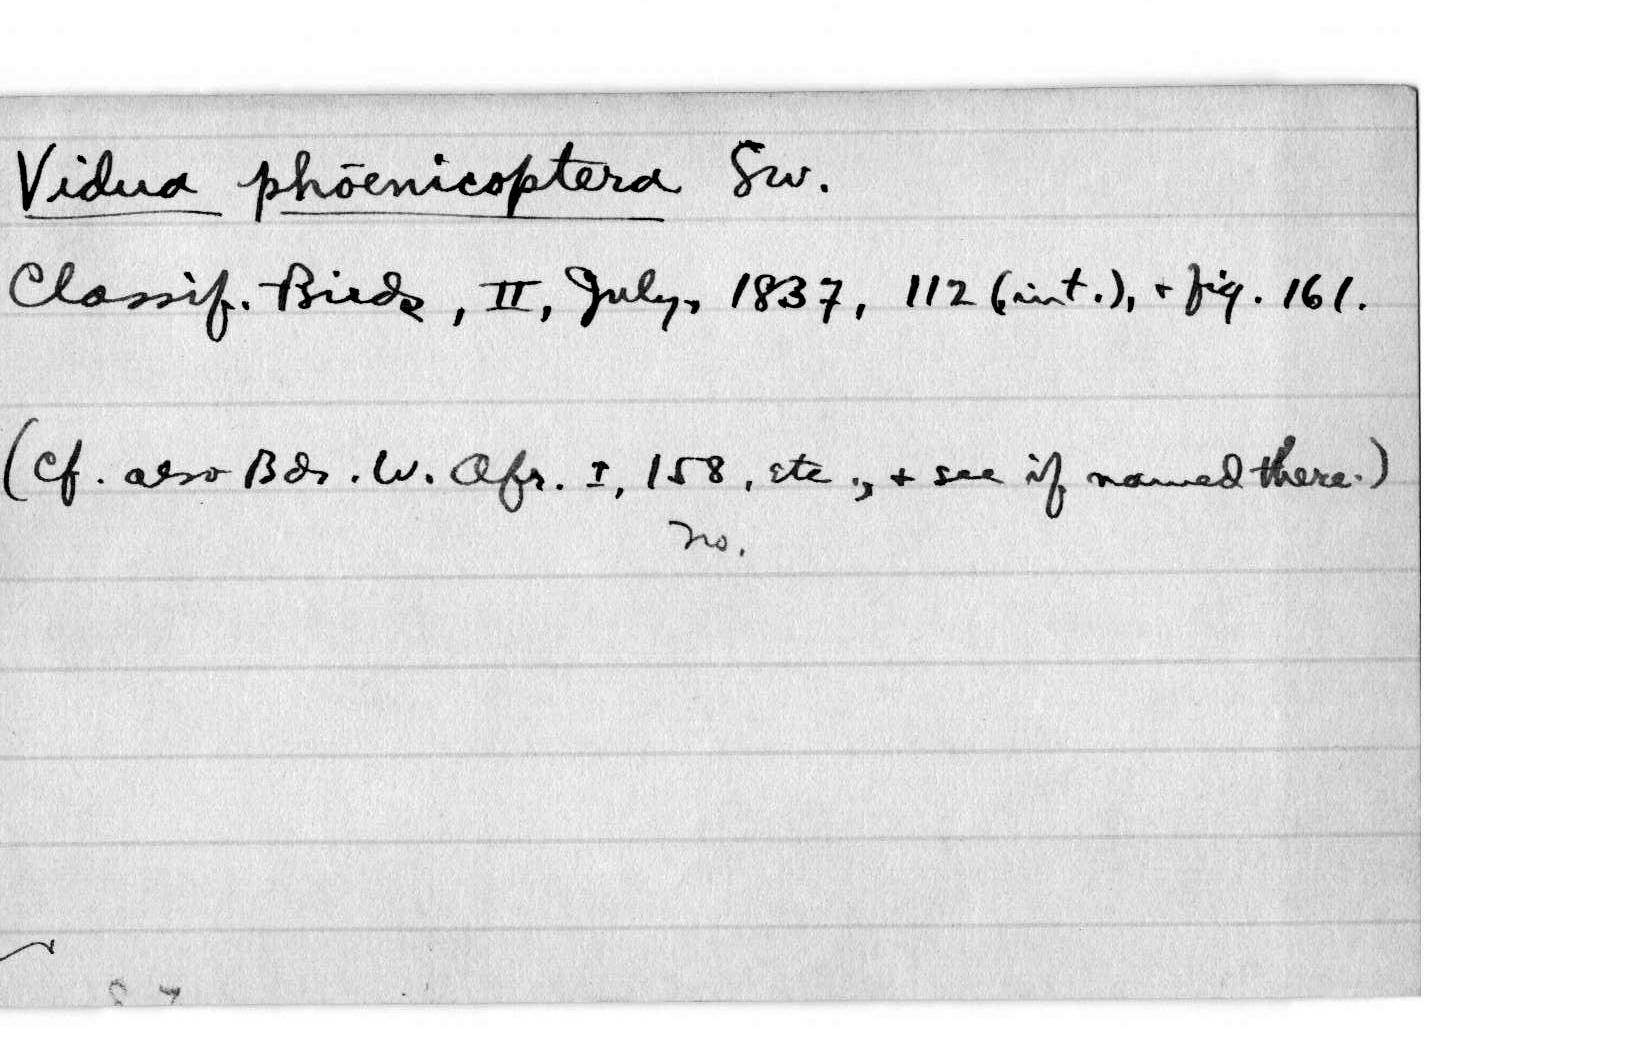 Vidua phōenicoptera Sw.
Classif. Birds, II, July, 1837, 112 (int.), + fig. 161.
(Cf. also Bds. W. Afr. I, 158, etc., + see if named there.)
No.